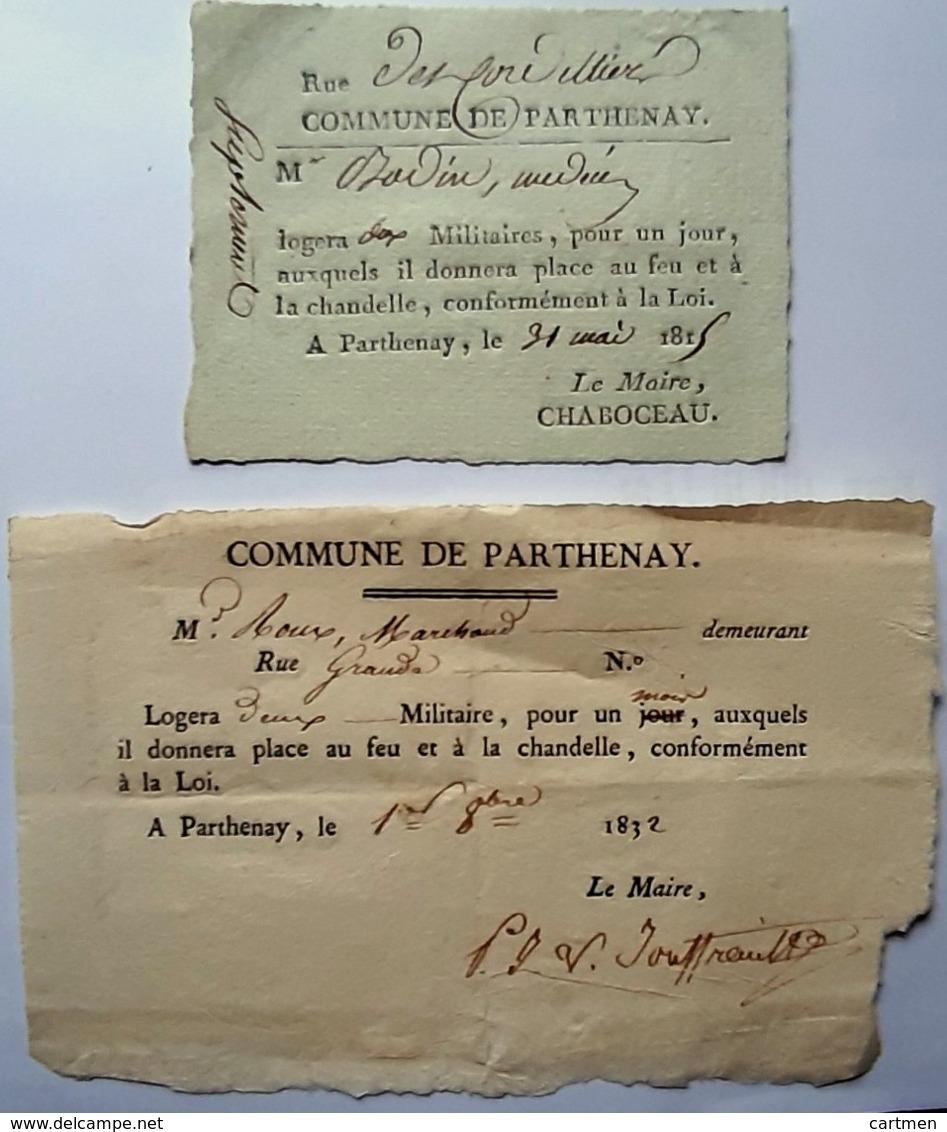 Rue des
COMMUNE DE PARTHENAY.
Mr Bodin, medecin
logera deux Militaires, pour un jour,
auxquels il donnera place au feu et à
la chandelle, conformément à la Loi.
A Parthenay, le 31 mai 1815
Le Maire,
CHABOCEAU.
COMMUNE DE PARTHENAY.
Mr. Roux, Marchand demeurant
Rue Grande N.o
mois
Logera deux Militaire, pour un jour, auxquels
il donnera place au feu et à la chandelle, conformément
à la Loi.
A Parthenay, le 1er 8bre 1832
Le Maire,
P. J. V. Jouffrault
cartmen